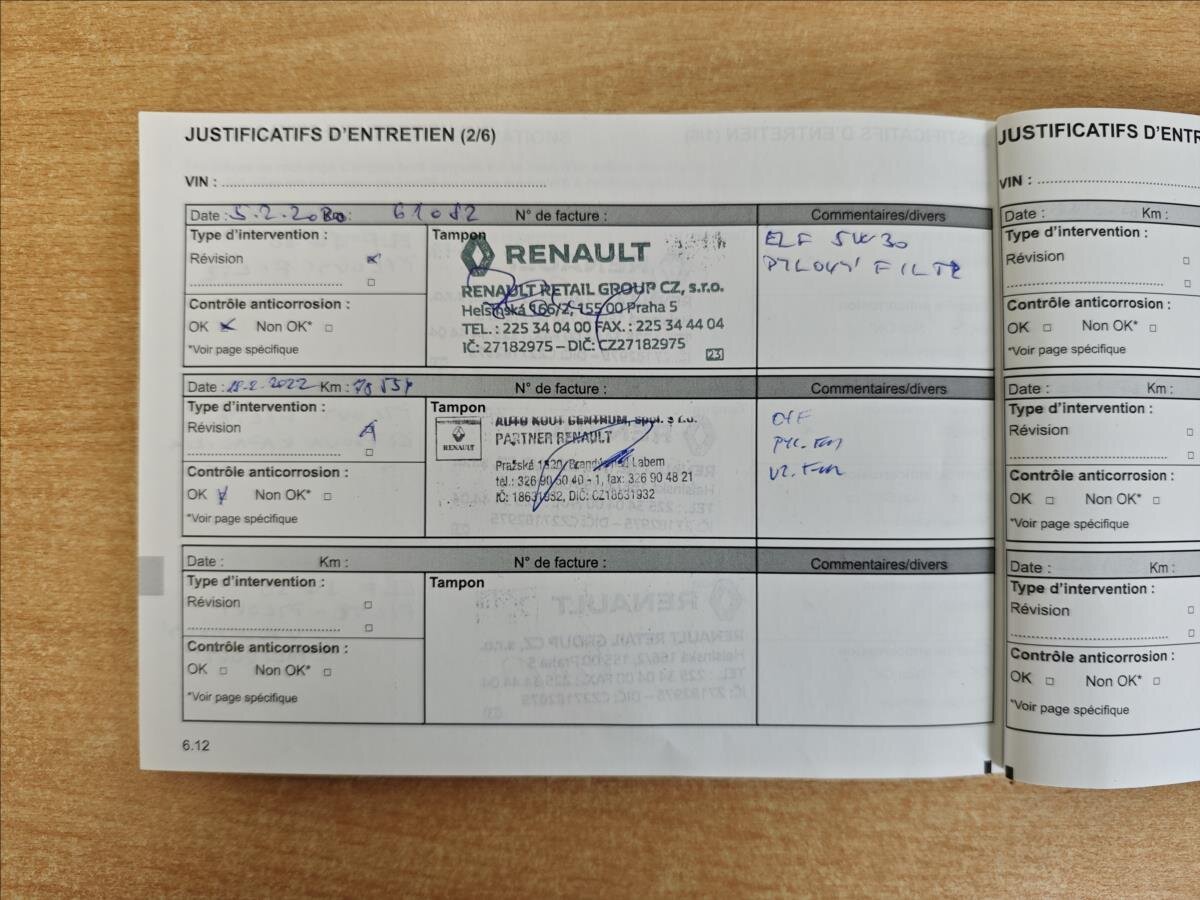 JUSTIFICATIFS D'ENTRETIEN (2/6)
VIN :
Date : 5.2.20 : 61082 N° de facture : Commentaires/divers
Type d'intervention :
Révision
Contrôle anticorrosion :
OK Non OK*
*Voir page spécifique
Tampon
RENAULT
RENAULT RETAIL GROUP CZ, s.r.o.
Helsinská 166/2, 155 00 Praha 5
TEL. : 225 34 04 00 FAX. : 225 34 44 04
IČ: 27182975 – DIČ: CZ27182975
23
ELF 5W30
PYLOVÝ FILTR
Date : 18.2.2022 Km : N° de facture : Commentaires/divers
Type d'intervention :
Révision
Contrôle anticorrosion :
OK Non OK*
*Voir page spécifique
Tampon
RENAULT
AUTO KOUT CENTRUM, spol. s r.o.
PARTNER RENAULT
Pražská 1820, Brandýs nad Labem
tel.: 326 90 50 40 - 1, fax: 326 90 48 21
IČ: 18631932, DIČ: CZ18631932
Date : Km : N° de facture : Commentaires/divers
Type d'intervention :
Révision
Contrôle anticorrosion :
OK Non OK*
*Voir page spécifique
Tampon
6.12
JUSTIFICATIFS D'ENTR
VIN :
Date : Km :
Type d'intervention :
Révision
Contrôle anticorrosion :
OK Non OK*
*Voir page spécifique
Date : Km :
Type d'intervention :
Révision
Contrôle anticorrosion :
OK Non OK*
*Voir page spécifique
Date : Km :
Type d'intervention :
Révision
Contrôle anticorrosion :
OK Non OK*
*Voir page spécifique